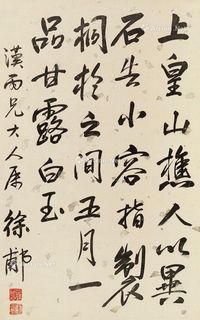 上皇山樵人以異
石告小容指製
桐柏之間五月一
品甘露白玉
漢丙兄大人屬
徐郙